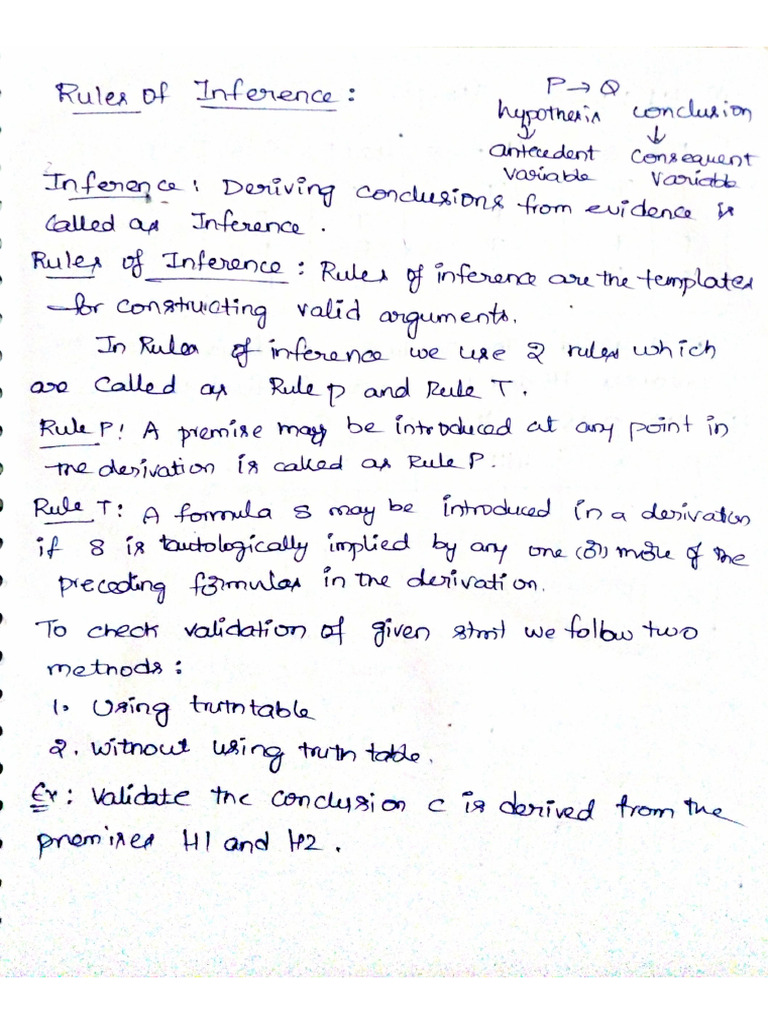 Rules of Inference :
P → Q
hypothesis conclusion
↓ ↓
antecedent consequent
variable variable
Inference : Deriving conclusions from evidence is
called as Inference .
Rules of Inference : Rules of inference are the templates
for constructing valid arguments.
In Rules of inference we use 2 rules which
are called as Rule p and Rule T.
Rule P: A premise may be introduced at any point in
the derivation is called as Rule P.
Rule T: A formula S may be introduced in a derivation
if S is tautologically implied by any one (or) more of the
preceding formulas in the derivation.
To check validation of given stmt we follow two
methods :
1. Using truth table
2. without using truth table.
Ex: Validate the conclusion C is derived from the
premises H1 and H2 .